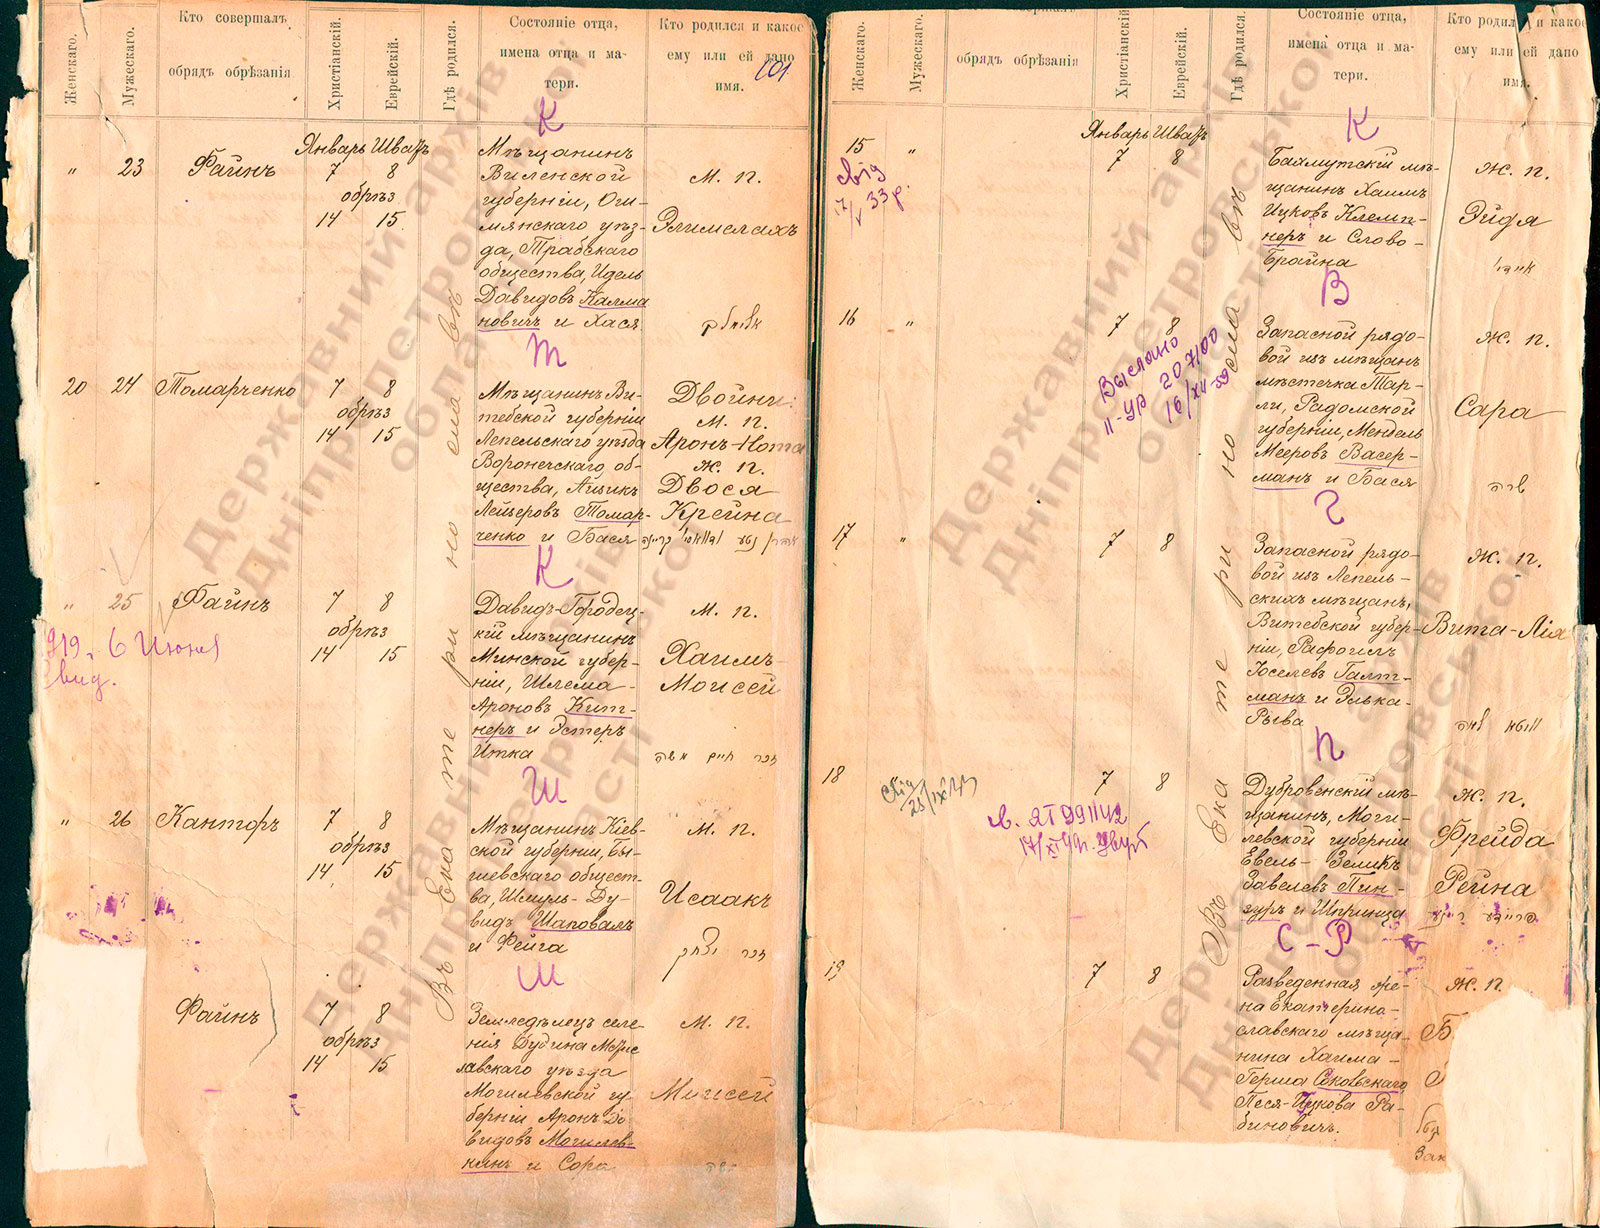 Женскаго.
Мужескаго.
Кто совершалъ
обрядъ обрѣзанія
Христіанскій.
Еврейскій.
Гдѣ родился.
Состояніе отца,
имена отца и ма-
тери.
Кто родился и какое
ему или ей дано
имя.
101
К
Январь Шватъ
" 23 Файнъ 7 8
обрѣз
14 15
Мѣщанинъ
Виленской
губерніи, Ош-
мянскаго уѣз-
да, Трабскаго
общества, Идель
Давидовъ Калма
новичъ и Хася
м. п.
Элимелахъ
Т
20 24 Томарченко 7 8
обрѣз
14 15
Мѣщанинъ Ви-
тебской губерніи
Лепельскаго уѣзда
Воронечскаго об-
щества, Айзикъ
Лейзеровъ Томар-
ченко и Бася
Двойни:
м. п.
Аронъ-Нота
ж. п.
Двося
Крейна
К
" 25 Файнъ 7 8
обрѣз
14 15
919. 6 Июня
вид.
Давидъ-Городец-
кій мѣщанинъ
Минской губер-
ніи, Шлема-
Ароновъ Кит-
неръ и Эстеръ
Итка
м. п.
Хаимъ-
Моисей
חיים משה
Ш
" 26 Канторъ 7 8
обрѣз
14 15
Мѣщанинъ Кіев-
ской губерніи, Бы-
шевскаго общест-
ва, Шмуль-Ду-
видъ Шаповалъ
и Фейга
м. п.
Исаакъ
יצחק
Ш
Файнъ 7 8
обрѣз
14 15
Земледѣлецъ селе-
нія Дудина Мстис
лавскаго уѣзда
Могилевской гу-
берніи Аронъ До-
видовъ Могилев-
кинъ и Сора
м. п.
Моисей
משה
Въ Екатеринославѣ
Женскаго.
Мужескаго.
обрядъ обрѣзанія
Христіанскій
Еврейскій.
Гдѣ родился.
Состояніе отца,
имена отца и ма-
тери.
Кто родился и какое
ему или ей дано
имя.
К
Январь Шватъ
15 " 7 8
свід
17/V 33 р.
Бахмутскій мѣ-
щанинъ Хаимъ
Ицковъ Клемп-
неръ и Слово-
Брайна
ж. п.
Эйдя
В
16 " 7 8
Выслано
II-УР 207100
16/XII-59
Запасной рядо-
вой изъ мѣщанъ
мѣстечка Тар-
ли, Радомской
губерніи, Мендель
Мееровъ Васер-
манъ и Бася
ж. п.
Сара
שרה
Г
17 " 7 8
Запасной рядо-
вой изъ Лепель-
скихъ мѣщанъ,
Витебской губер-
ніи, Рафоилъ
Іоселевъ Галт-
манъ и Элька-
Рыва
ж. п.
Вита-Лія
П
18 7 8
Дубровенскій мѣ-
щанинъ, Моги-
левской губерніи
Евель-Зеликъ
Завелевъ Пин-
зуръ и Шпринца
ж. п.
Фрейда
Рейна
С-Р
19 7 8
Разведенная же-
на Екатерино-
славскаго мѣща-
нина Хаима-
Герша Соковскаго
Песя-Ицкова Ра-
биновичъ.
ж. п.
Б
Зак
Въ Екатеринославѣ
Державний архів
Дніпропетровської
області
Державний архів
Дніпропетровської
області
Державний архів
Дніпропетровської
області
Державний архів
Дніпропетровської
області